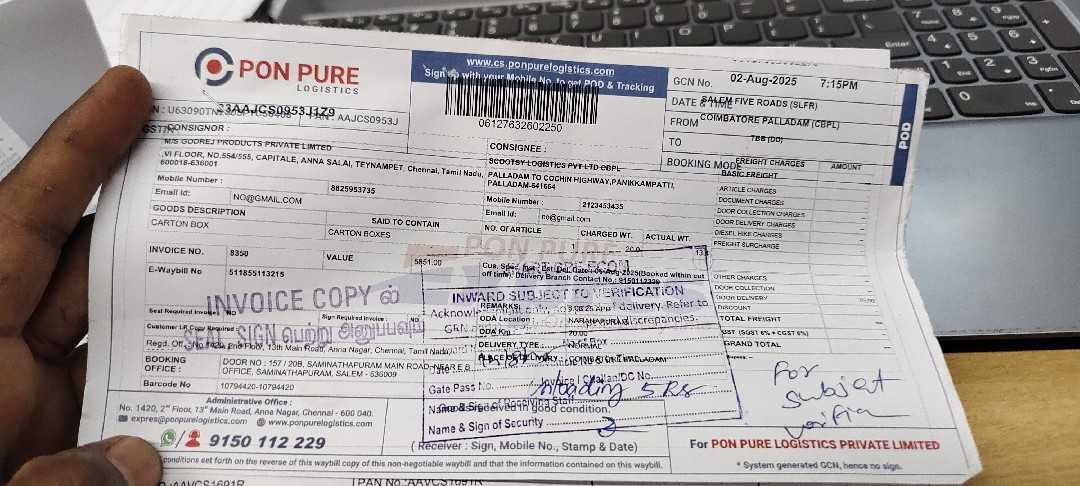 PON PURE
LOGISTICS
www.cs.ponpurelogistics.com
Sign in with your Mobile No. to get POD & Tracking
06127632602250
GCN No.
02-Aug-2025 7:15PM
DATE & TIME
SALEM FIVE ROADS (SLFR)
FROM
COIMBATORE PALLADAM (CBPL)
TO
TBB (DD)
BOOKING MODE
POD
33AAJCS0953J1Z9
PAN: AAJCS0953J
GSTIN
CONSIGNOR :
M/S GODREJ PRODUCTS PRIVATE LIMTED
,VI FLOOR, NO.554/555, CAPITALE, ANNA SALAI, TEYNAMPET, Chennai, Tamil Nadu,
600018-636001
Mobile Number :
8825953735
Email Id:
NO@GMAIL.COM
CONSIGNEE :
SCOOTSY LOGISTICS PVT LTD CBPL
PALLADAM TO COCHIN HIGHWAY,PANIKKAMPATTI,
PALLADAM-641664
Mobile Number :
2123453435
Email Id:
no@gmail.com
FREIGHT CHARGES
AMOUNT
BASIC FREIGHT
ARTICLE CHARGES
DOCUMENT CHARGES
DOOR COLLECTION CHARGES
DOOR DELIVERY CHARGES
DIESEL HIKE CHARGES
FREIGHT SURCHARGE
OTHER CHARGES
DOOR COLLECTION
DOOR DELIVERY
DISCOUNT
TOTAL FREIGHT
GST (SGST 6% + CGST 6%)
GRAND TOTAL
GOODS DESCRIPTION
SAID TO CONTAIN
NO. OF ARTICLE
CHARGED WT.
ACTUAL WT.
CARTON BOX
CARTON BOXES
20.0
PON PURE
INVOICE NO.
8350
VALUE
5851.00
E-Waybill No
511855113215
off time). Delivery Branch Contact No.: 9150112229
INVOICE COPY ல்
SEAL SIGN பெற்று அனுப்பவும்
INWARD SUBJECT TO VERIFICATION
REMARKS:
ODA Location :
NARANAPURAM
ODA Km :
20.00
DELIVERY TYPE :
NORMAL
Seal Required Invoice :
NO
Sign Required Invoice :
NO
Customer LR Copy Required
BOOKING
OFFICE :
DOOR NO : 157 / 20B, SAMINATHAPURAM MAIN ROAD,
SAMINATHAPURAM, SALEM - 636009
Barcode No
10794420-10794420
Gate Pass No.
unloading 5 Rs
Goods received in good condition.
Name & Sign of Security
( Receiver : Sign, Mobile No., Stamp & Date)
For
Subject
Administrative Office :
No. 1420, 2nd Floor, 13th Main Road, Anna Nagar, Chennai - 600 040.
expres@ponpurelogistics.com
www.ponpurelogistics.com
9150 112 229
For PON PURE LOGISTICS PRIVATE LIMITED
* System generated GCN, hence no sign.
conditions set forth on the reverse of this waybill copy of this non-negotiable waybill and that the information contained on this waybill.